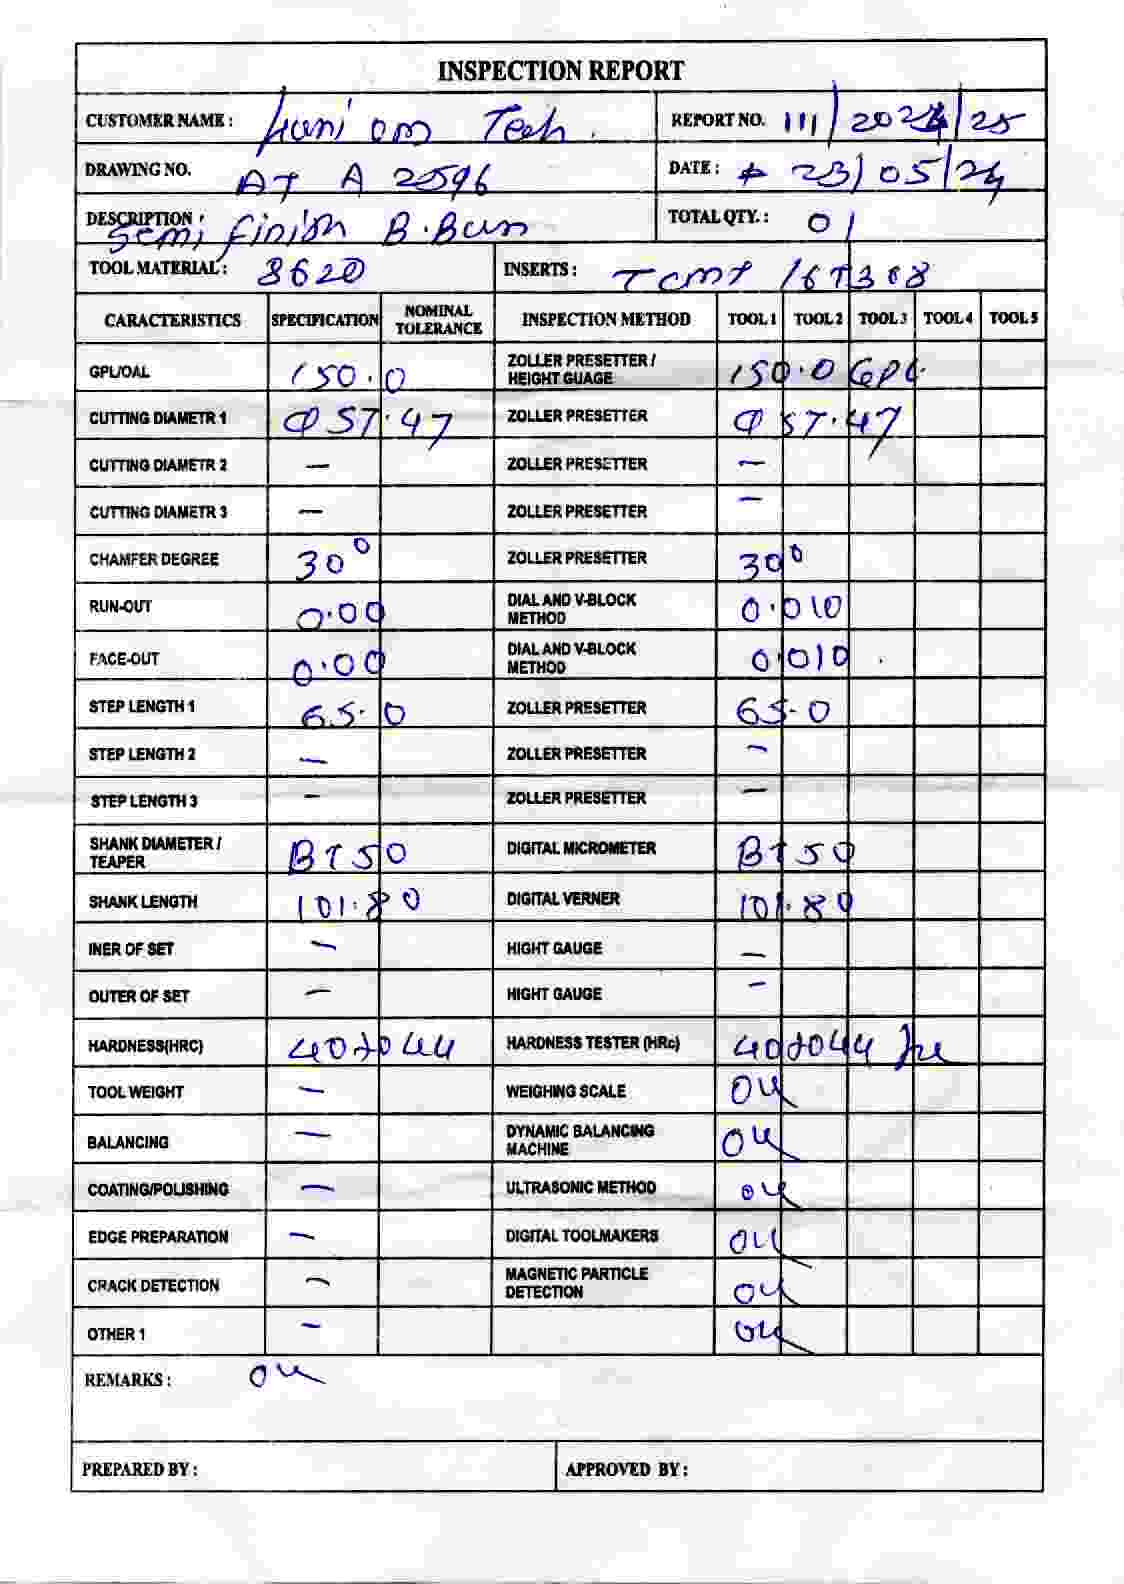 INSPECTION REPORT
CUSTOMER NAME : om Tech. REPORT NO. 111/2024/25
DRAWING NO. AT A 2596 DATE : 23/05/24
DESCRIPTION : Semi finish B.Bar TOTAL QTY. : 01
TOOL MATERIAL : 8620 INSERTS : TCMT 16T308
CARACTERISTICS SPECIFICATION NOMINAL TOLERANCE INSPECTION METHOD TOOL 1 TOOL 2 TOOL 3 TOOL 4 TOOL 5
GPL/OAL 150.0 ZOLLER PRESETTER / HEIGHT GUAGE 150.0 GPL
CUTTING DIAMETR 1 Φ 57.47 ZOLLER PRESETTER Φ 57.47
CUTTING DIAMETR 2 — ZOLLER PRESETTER —
CUTTING DIAMETR 3 — ZOLLER PRESETTER —
CHAMFER DEGREE 30° ZOLLER PRESETTER 30°
RUN-OUT 0.00 DIAL AND V-BLOCK METHOD 0.010
FACE-OUT 0.00 DIAL AND V-BLOCK METHOD 0.010
STEP LENGTH 1 65.0 ZOLLER PRESETTER 65.0
STEP LENGTH 2 — ZOLLER PRESETTER —
STEP LENGTH 3 — ZOLLER PRESETTER —
SHANK DIAMETER / TEAPER BT50 DIGITAL MICROMETER BT50
SHANK LENGTH 101.80 DIGITAL VERNER 101.80
INER OF SET — HIGHT GAUGE —
OUTER OF SET — HIGHT GAUGE —
HARDNESS(HRC) 40 to 44 HARDNESS TESTER (HRc) 40 to 44
TOOL WEIGHT — WEIGHING SCALE OK
BALANCING — DYNAMIC BALANCING MACHINE OK
COATING/POLISHING — ULTRASONIC METHOD OK
EDGE PREPARATION — DIGITAL TOOLMAKERS OK
CRACK DETECTION — MAGNETIC PARTICLE DETECTION OK
OTHER 1 — OK
REMARKS : OK
PREPARED BY : APPROVED BY :